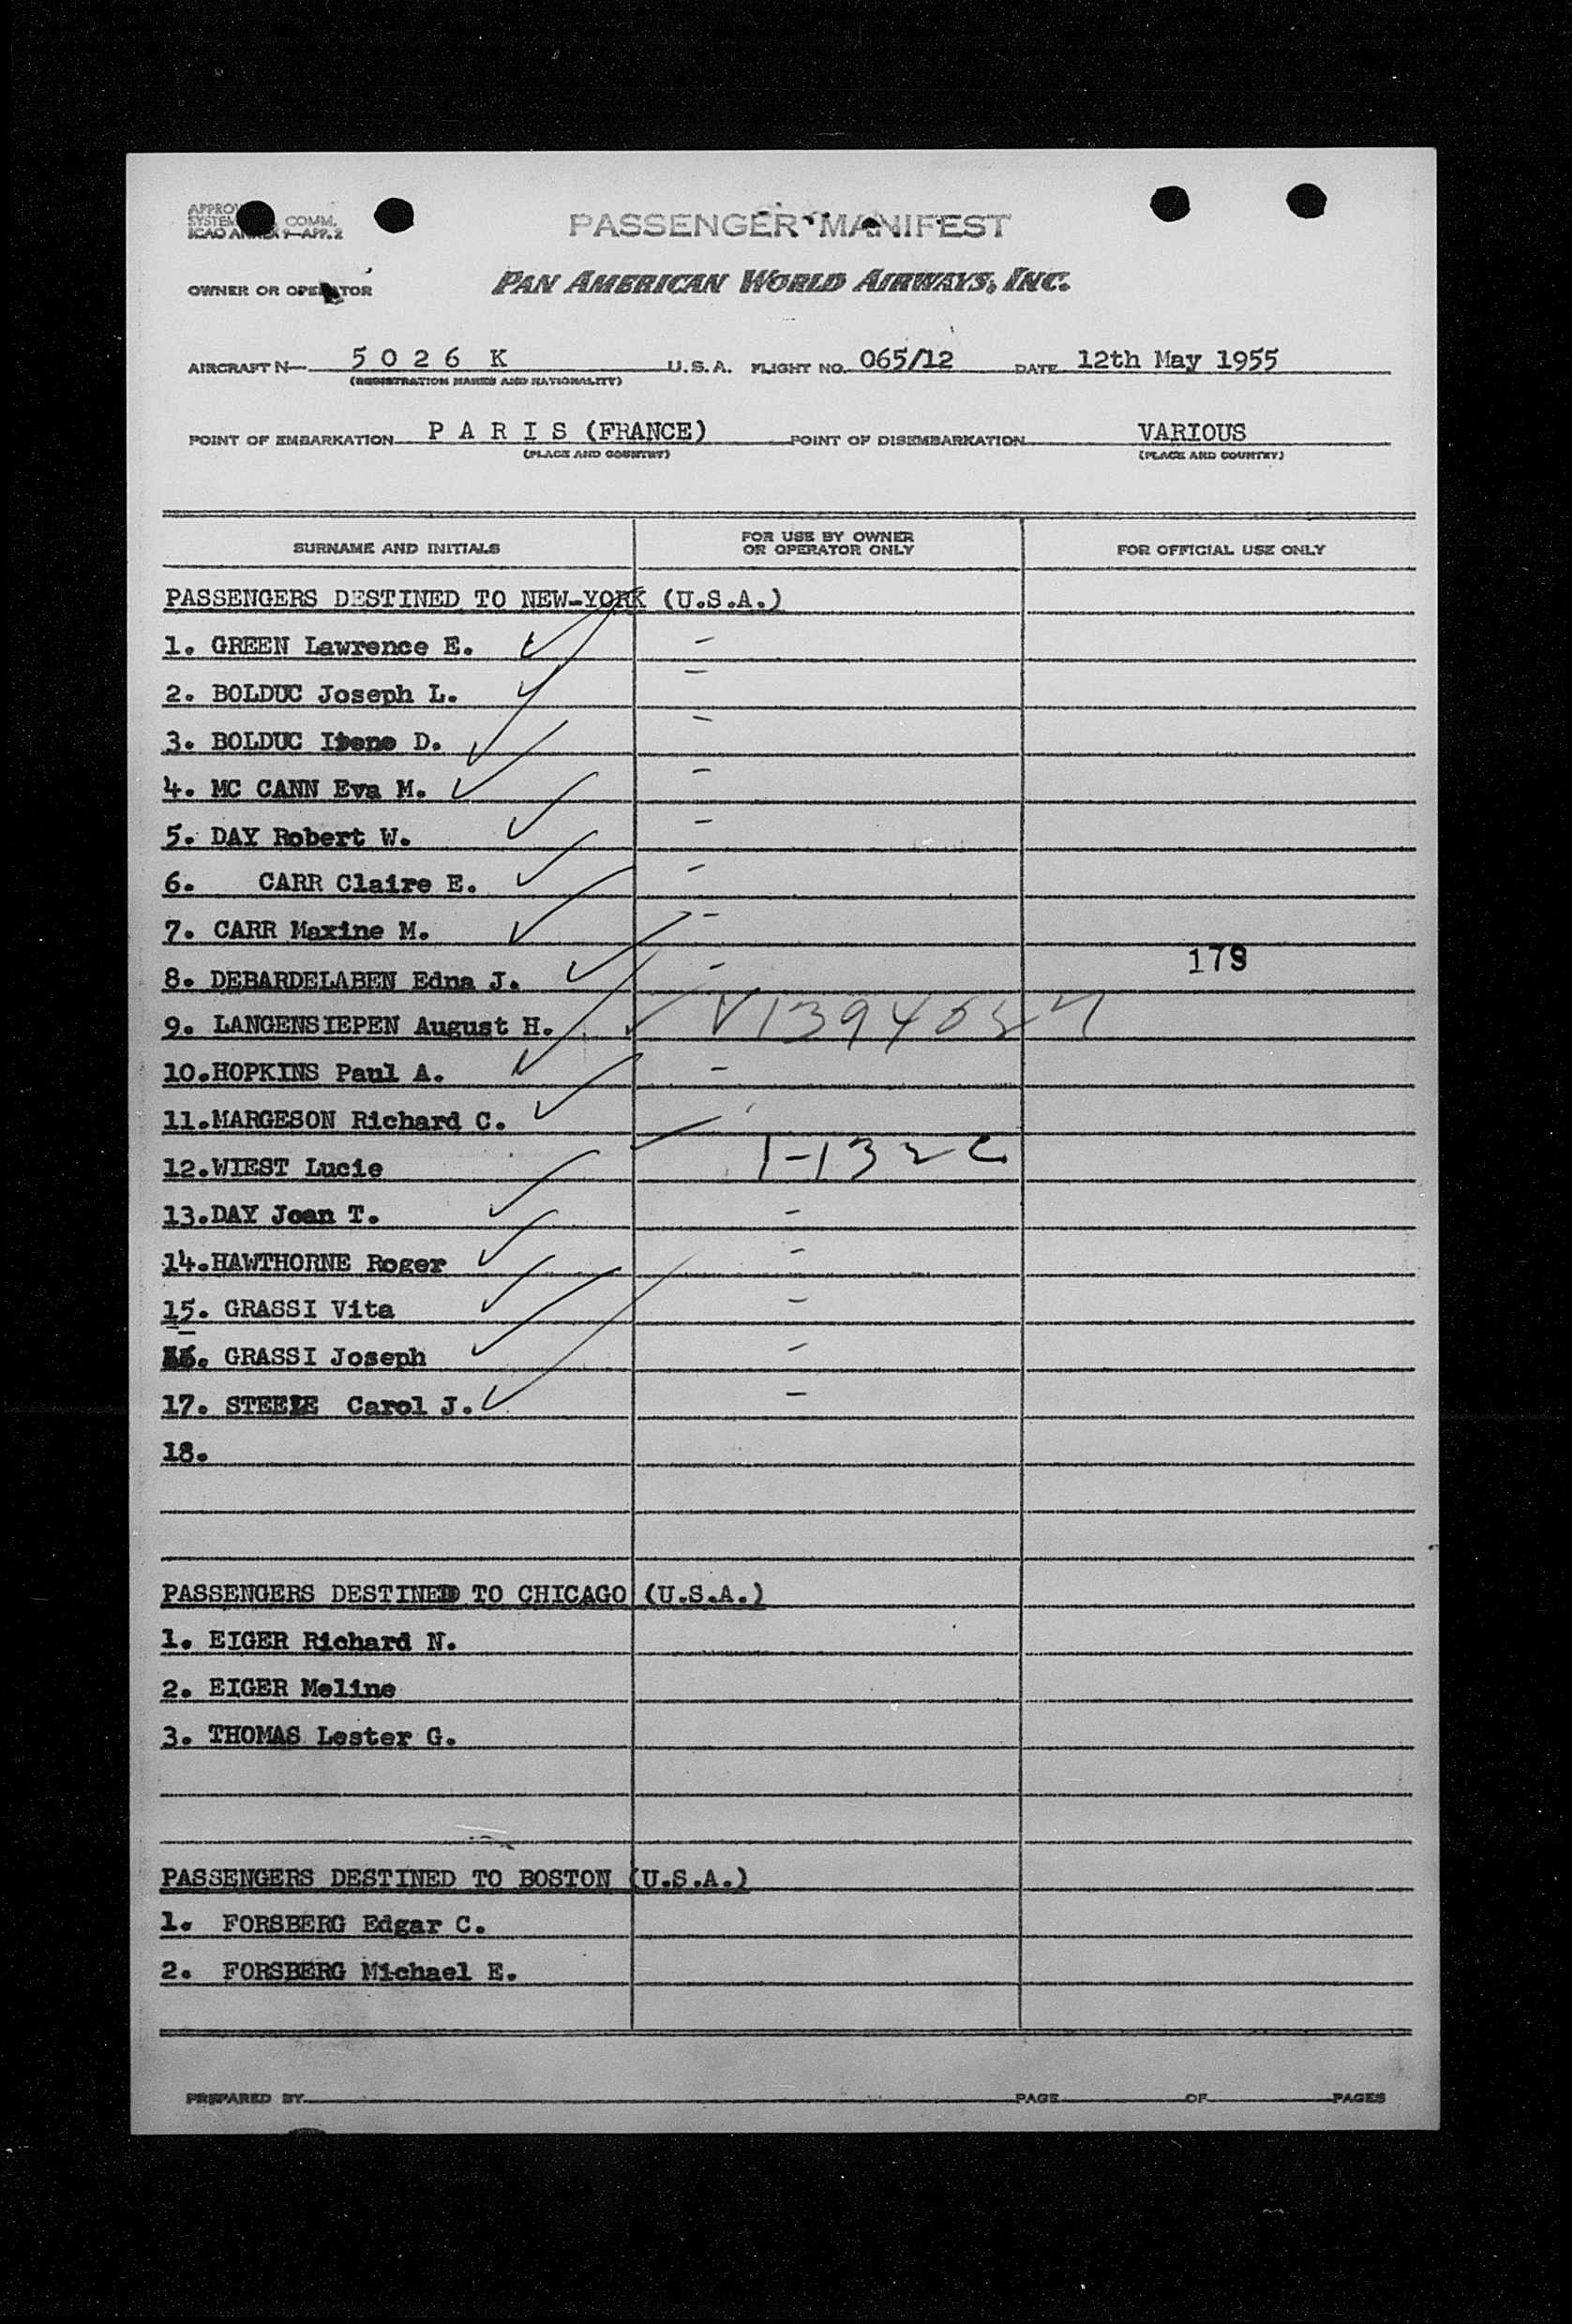 PASSENGER MANIFEST
COMM.
ICAO 9—APP. 2
OWNER OR OPERATOR PAN AMERICAN WORLD AIRWAYS, INC.
AIRCRAFT N— 5 0 2 6 K U.S.A. FLIGHT NO. 065/12 DATE 12th May 1955
(REGISTRATION MARKS AND NATIONALITY)
POINT OF EMBARKATION P A R I S (FRANCE) POINT OF DISEMBARKATION VARIOUS
(PLACE AND COUNTRY) (PLACE AND COUNTRY)
SURNAME AND INITIALS FOR USE BY OWNER OR OPERATOR ONLY FOR OFFICIAL USE ONLY
PASSENGERS DESTINED TO NEW-YORK (U.S.A.)
1. GREEN Lawrence E. –
2. BOLDUC Joseph L. –
3. BOLDUC Irene D. –
4. MC CANN Eva M. –
5. DAY Robert W. –
6. CARR Claire E. –
7. CARR Maxine M. –
8. DEBARDELABEN Edna J. – 179
9. LANGENSIEPEN August H.
10.HOPKINS Paul A. –
11.MARGESON Richard C.
12.WIEST Lucie 1-1322
13.DAY Joan T. –
14.HAWTHORNE Roger –
15. GRASSI Vita –
16. GRASSI Joseph –
17. STEELE Carol J. –
18.
PASSENGERS DESTINED TO CHICAGO (U.S.A.)
1. EIGER Richard N.
2. EIGER Meline
3. THOMAS Lester G.
PASSENGERS DESTINED TO BOSTON (U.S.A.)
1. FORSBERG Edgar C.
2. FORSBERG Michael E.
PREPARED BY PAGE OF PAGES